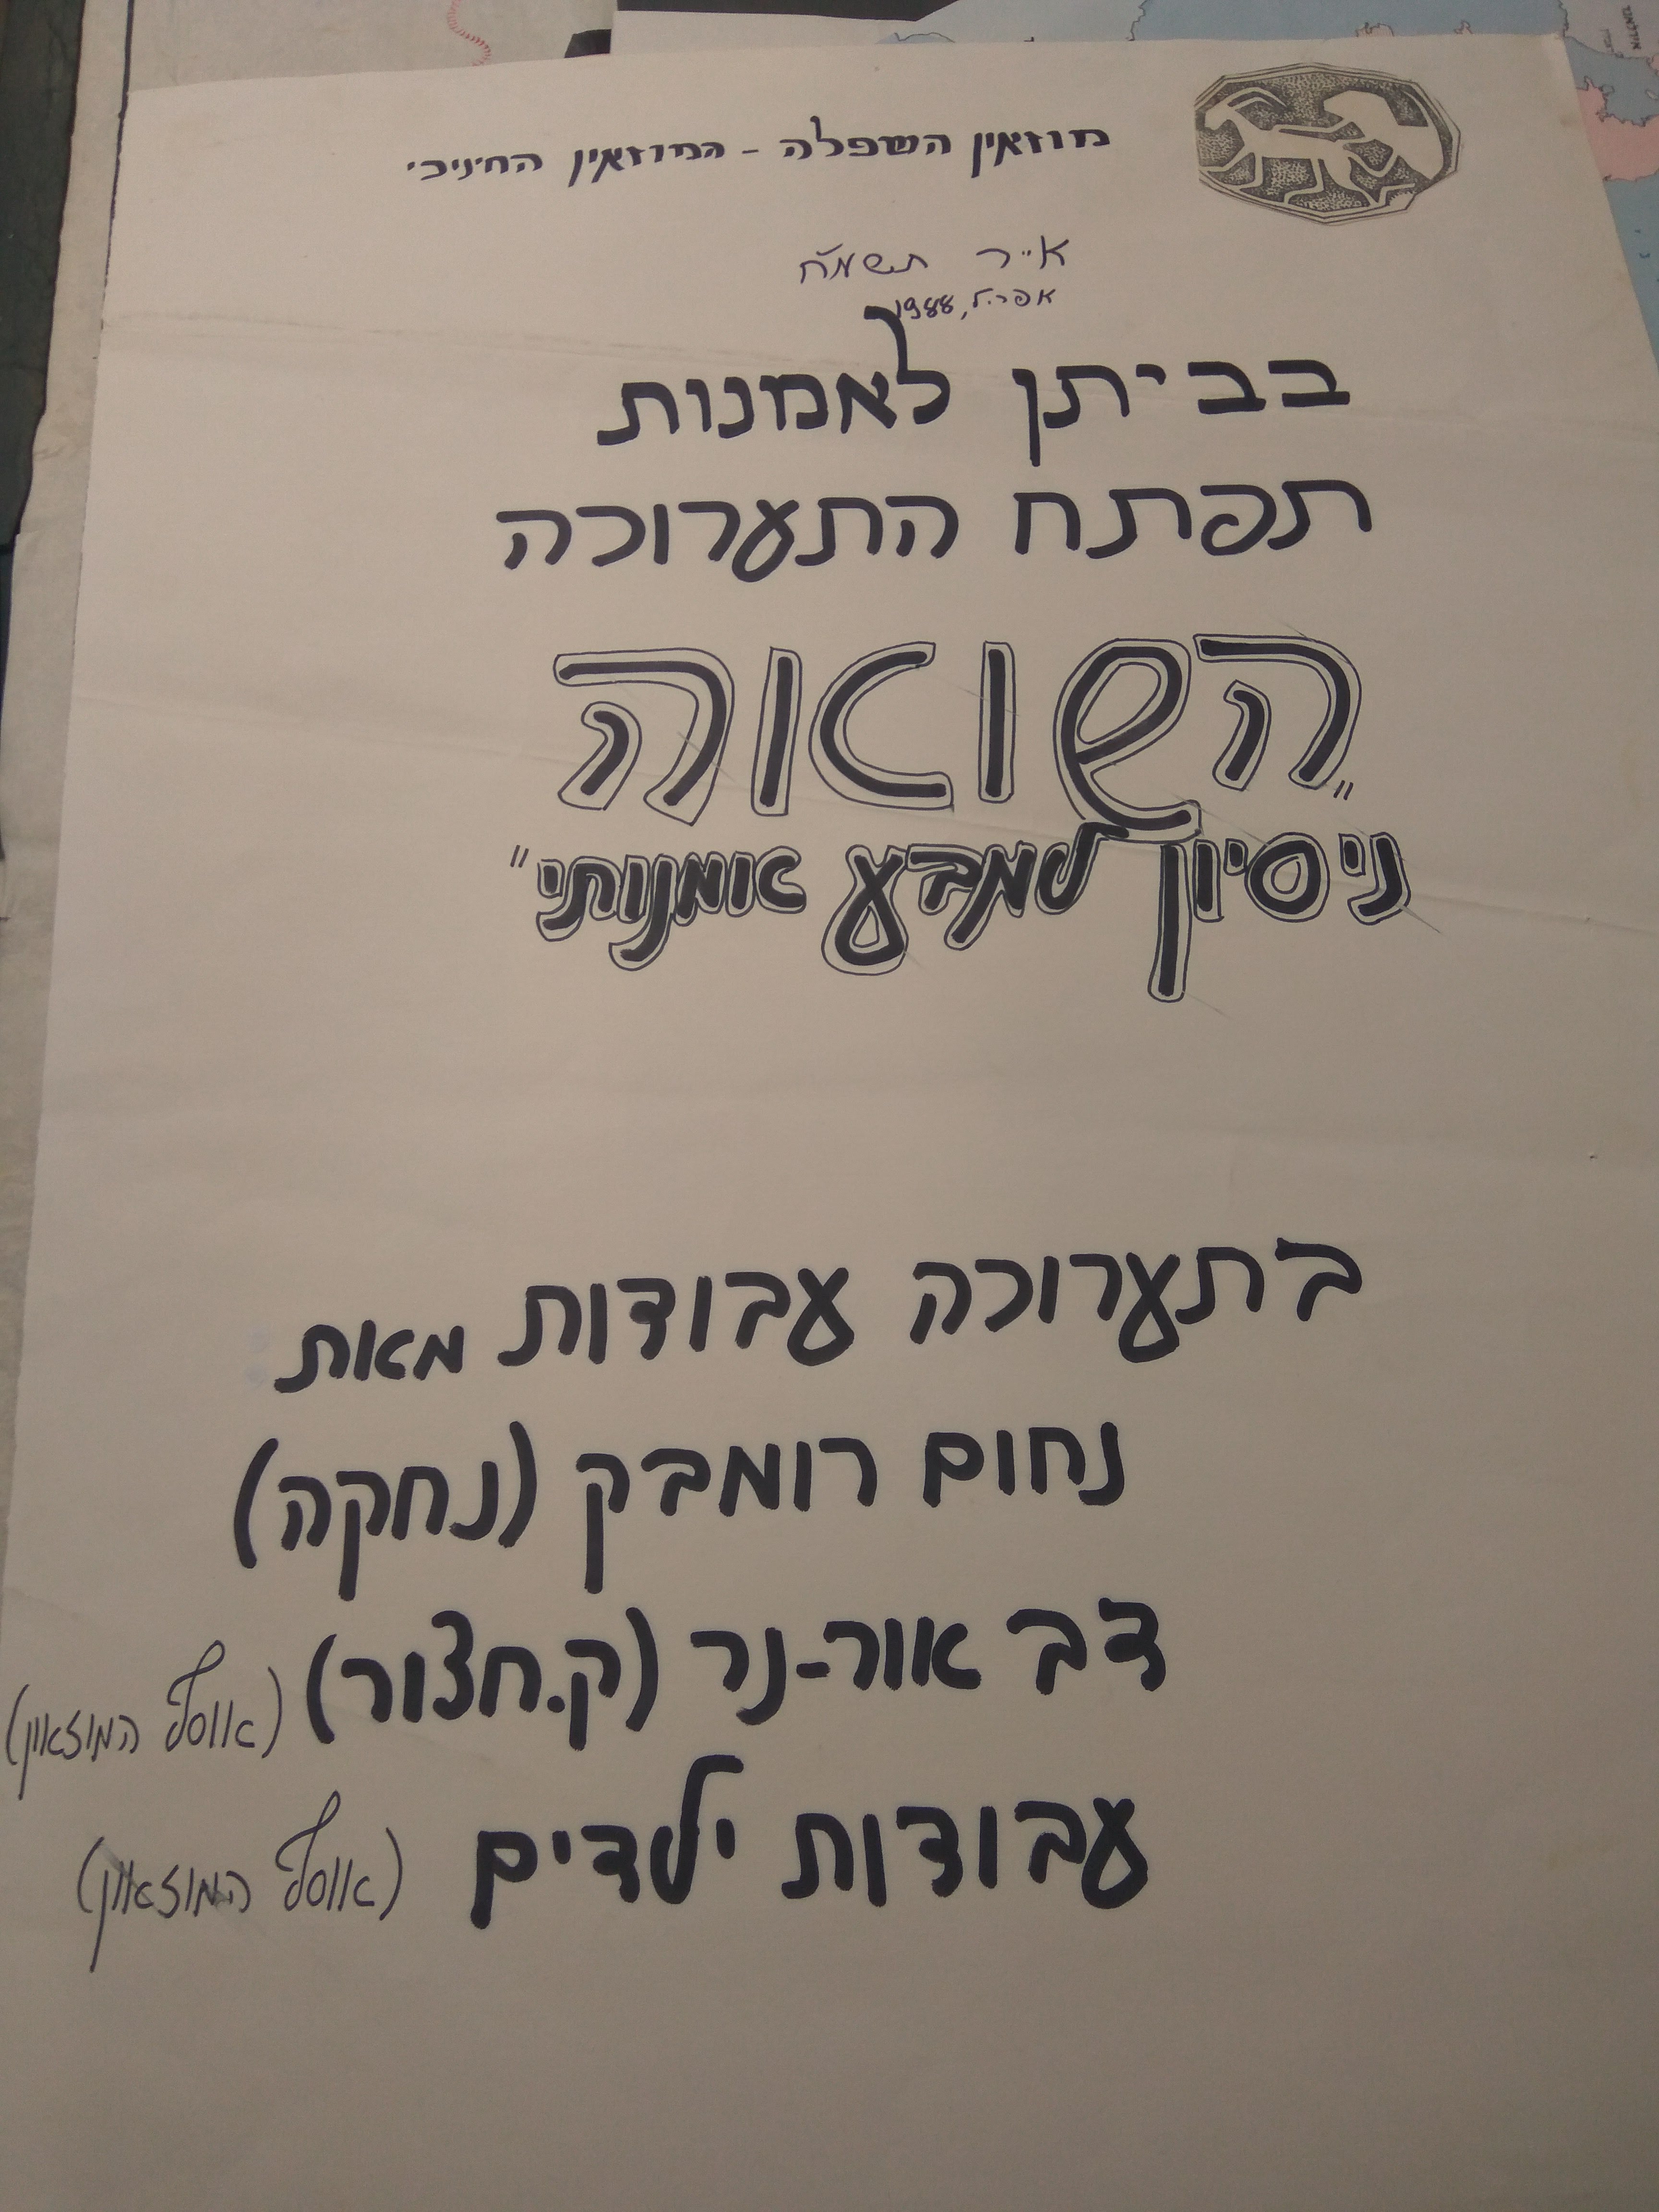 מוזאון השפלה - המוזאון החינוכי
אייר תשמ״ח
אפריל, 1988
בביתן לאמנות
תפתח התערוכה
"השואה
ניסיון למבע אומנותי"
בתערוכה עבודות מאת
נחום רומבק (נחקה)
דב אור-נר (ק.חצור) (אוסף המוזאון)
עבודות ילדים (אוסף המוזאון)